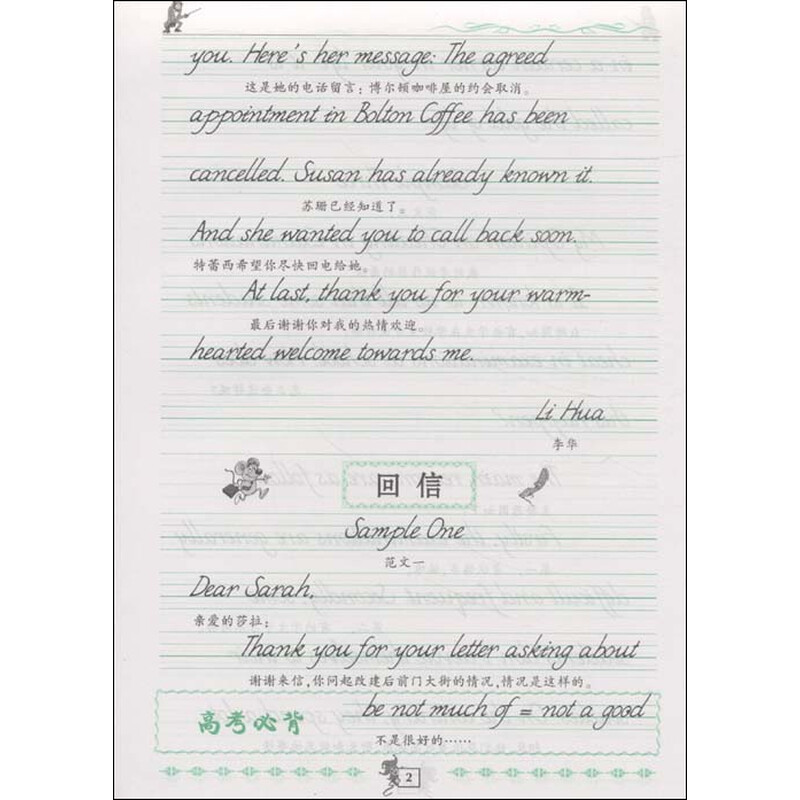 you. Here's her message: The agreed
这是她的电话留言：博尔顿咖啡屋的约会取消。
appointment in Bolton Coffee has been
cancelled. Susan has already known it.
苏珊已经知道了。
And she wanted you to call back soon.
特蕾西希望你尽快回电给她。
At last, thank you for your warm-
最后谢谢你对我的热情欢迎。
hearted welcome towards me.
Li Hua
李华
回信
Sample One
范文一
Dear Sarah,
亲爱的莎拉：
Thank you for your letter asking about
谢谢来信，你问起改建后前门大街的情况，情况是这样的。
高考必背
be not much of = not a good
不是很好的……
2